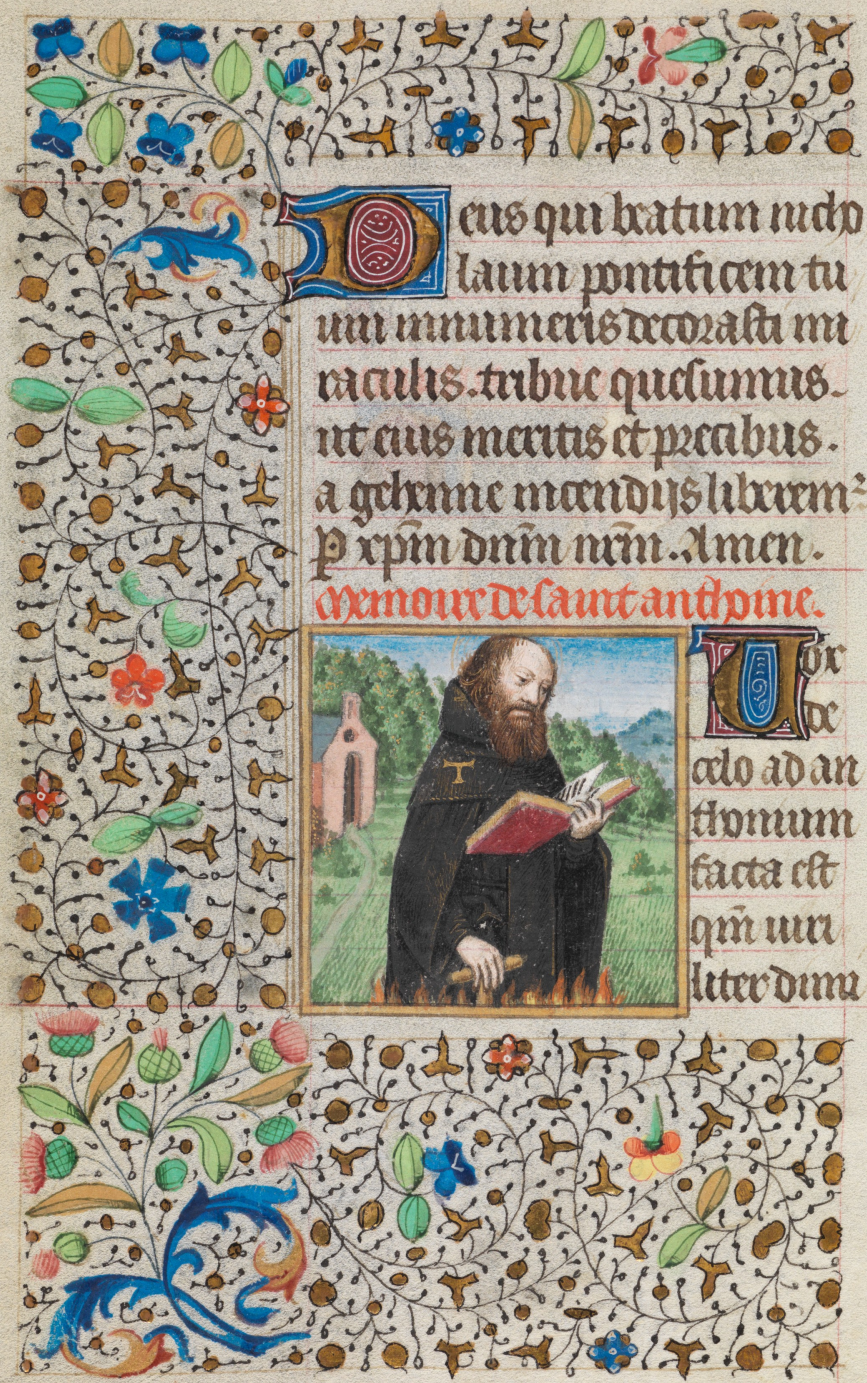 Deus qui beatum nicho
laum pontificem tu
um innumeris decorasti mi
raculis. tribue quesumus.
ut eius meritis et precibus.
a gehenne incendijs liberem᷑
P xp̄m dn̄m nr̄m. Amen.
Memoire de saint anthoine.
Vox
de
celo ad an
thonium
facta est
qm̄ uiri
liter dimi